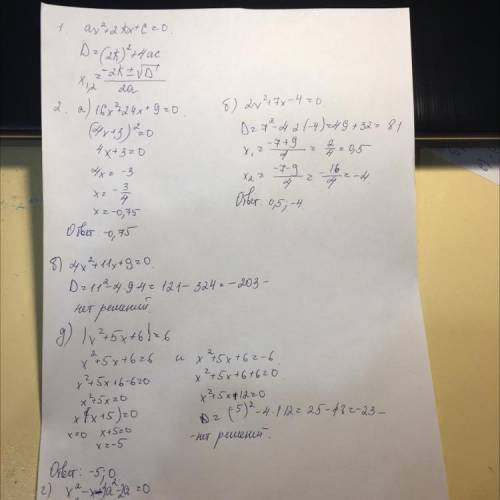 1. ax²+2kx+c=0.
D=(2k)²+4ac
x₁,₂=(-2k±√D)/2a
2. а) 16x²+24x+9=0
(4x+3)²=0
4x+3=0
4x=-3
x=-3/4
x=-0,75
Ответ: -0,75
б) 2x²+7x-4=0
D=7²-4·2·(-4)=49+32=81
x₁=(-7+9)/4=2/4=0,5
x₂=(-7-9)/4=-16/4=-4.
Ответ: 0,5; -4
в) 4x²+11x+9=0.
D=11²-4·9·4=121-324=-203-
нет решений
д) |x²+5x+6|=6
x²+5x+6=6 и x²+5x+6=-6
x²+5x+6-6=0 x²+5x+6+6=0
x²+5x=0 x²+5x+12=0
x(x+5)=0 D=(-5)²-4·1·12=25-48=-23-
x=0 x+5=0 -нет решений.
x=-5
Ответ: -5; 0
г)